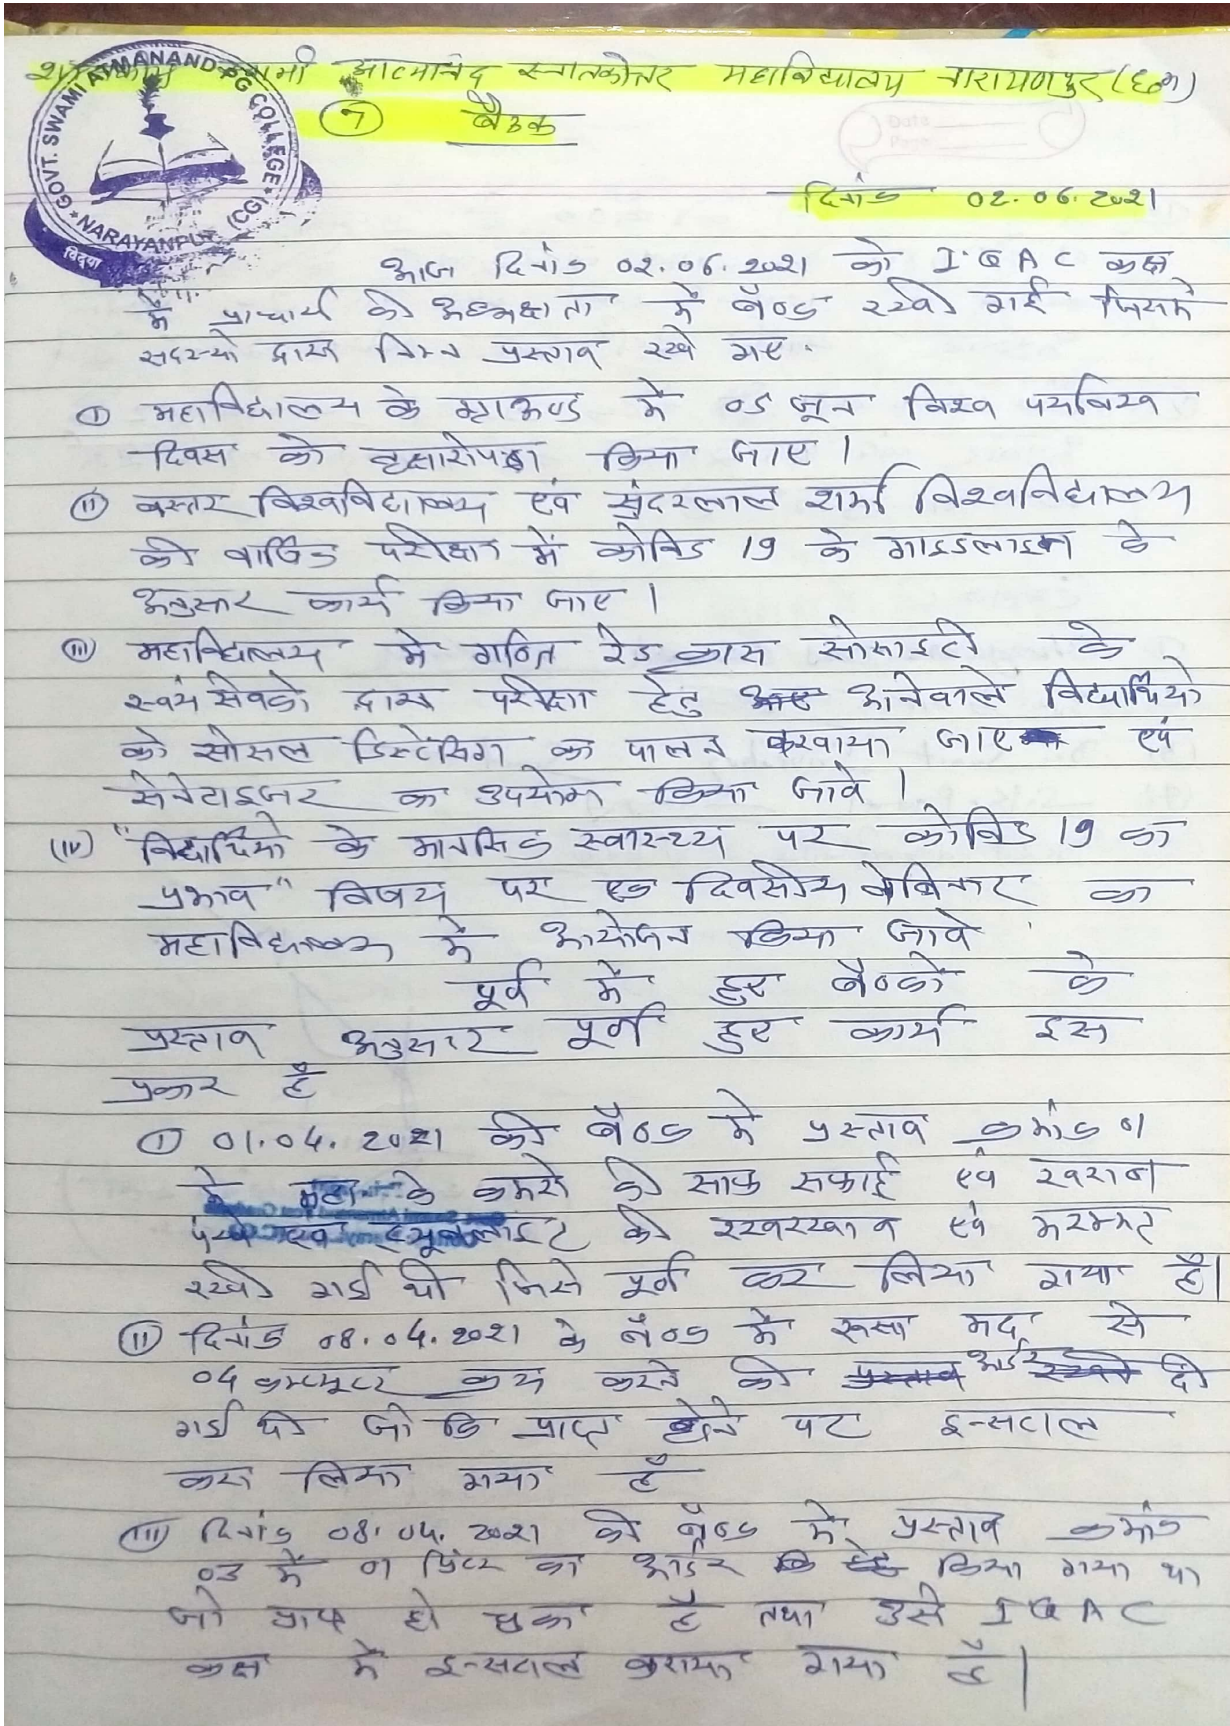 शासकीय स्वामी आत्मानंद स्नातकोत्तर महाविद्यालय नारायणपुर (छ०ग)
GOVT. SWAMI ATMANAND PG COLLEGE
NARAYANPUR (CG)
विद्या
7 बैठक
दिनांक 02.06.2021
आज दिनांक 02.06.2021 को I Q A C कक्ष
में प्राचार्य की अध्यक्षता में बैठक रखी गई जिसमे
सदस्यो द्वारा निम्न प्रस्ताव रखे गए.
(I) महाविद्यालय के ग्राऊण्ड में 05 जून विश्व पर्यावरण
दिवस को वृक्षारोपण किया जाए।
(II) बस्तर विश्वविद्यालय एवं सुंदरलाल शर्मा विश्वविद्यालय
की वार्षिक परीक्षा में कोविड 19 के गाइडलाइन के
अनुसार कार्य किया जाए।
(III) महाविद्यालय मे गठित रेड क्रास सोसाइटी के
स्वयं सेवको द्वारा परीक्षा हेतु आनेवाले विद्यार्थियो
को सोसल डिस्टेंसिंग का पालन करवाया जाए एवं
सेनेटाइजर का उपयोग किया जावे।
(IV) "विद्यार्थियो के मानसिक स्वास्थ्य पर कोविड 19 का
प्रभाव" विषय पर एक दिवसीय वेबिनार का
महाविद्यालय में आयोजन किया जावे
पूर्व में हुए बैठको के
प्रस्ताव अनुसार पूर्ण हुए कार्य इस
प्रकार है
(I) 01.04.2021 की बैठक मे प्रस्ताव क्रमांक 01
में महा के कमरो की साफ सफाई एवं खराब
पंखे एवं ट्यूबलाइट की रखरखाव एवं मरम्मत
रखी गई थी जिसे पूर्ण कर लिया गया है।
(II) दिनांक 08.04.2021 के बैठक में रूसा मद से
04 कम्प्यूटर क्रय करने की आर्डर दी
गई थी जो कि प्राप्त होने पर इन्सटाल
करा लिया गया है
(III) दिनांक 08.04.2021 की बैठक में प्रस्ताव क्रमांक
03 में 01 प्रिंटर का आर्डर किया गया था
जो प्राप्त हो चुका है तथा उसे I Q A C
कक्ष में इन्सटाल कराया गया है।